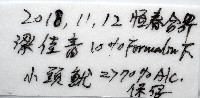 2018.11.12 恒春合界
梁佳音 10% Formalin 下
小頭魷 => 70% Alc.
保存